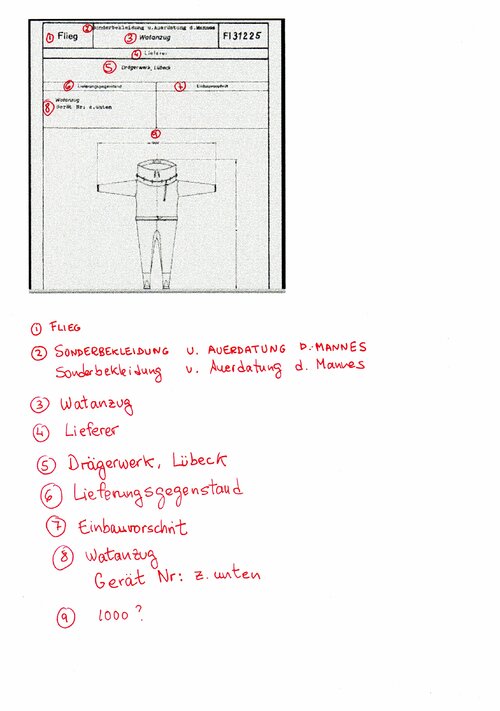 ② Sonderbekleidung u. Auerdatung d. Mannes
① Flieg
③ Watanzug
Fl 31225
④ Lieferer
⑤ Drägerwerk, Lübeck
⑥ Lieferungsgegenstand
⑦ Einbauvorschrift
⑧ Watanzug
Gerät Nr: z.unten
⑨
① FLIEG
② SONDERBEKLEIDUNG U. AUERDATUNG D. MANNES
Sonderbekleidung u. Auerdatung d. Mannes
③ Watanzug
④ Lieferer
⑤ Drägerwerk, Lübeck
⑥ Lieferungsgegenstand
⑦ Einbauvorschrit
⑧ Watanzug
Gerät Nr: z. unten
⑨ 1000 ?